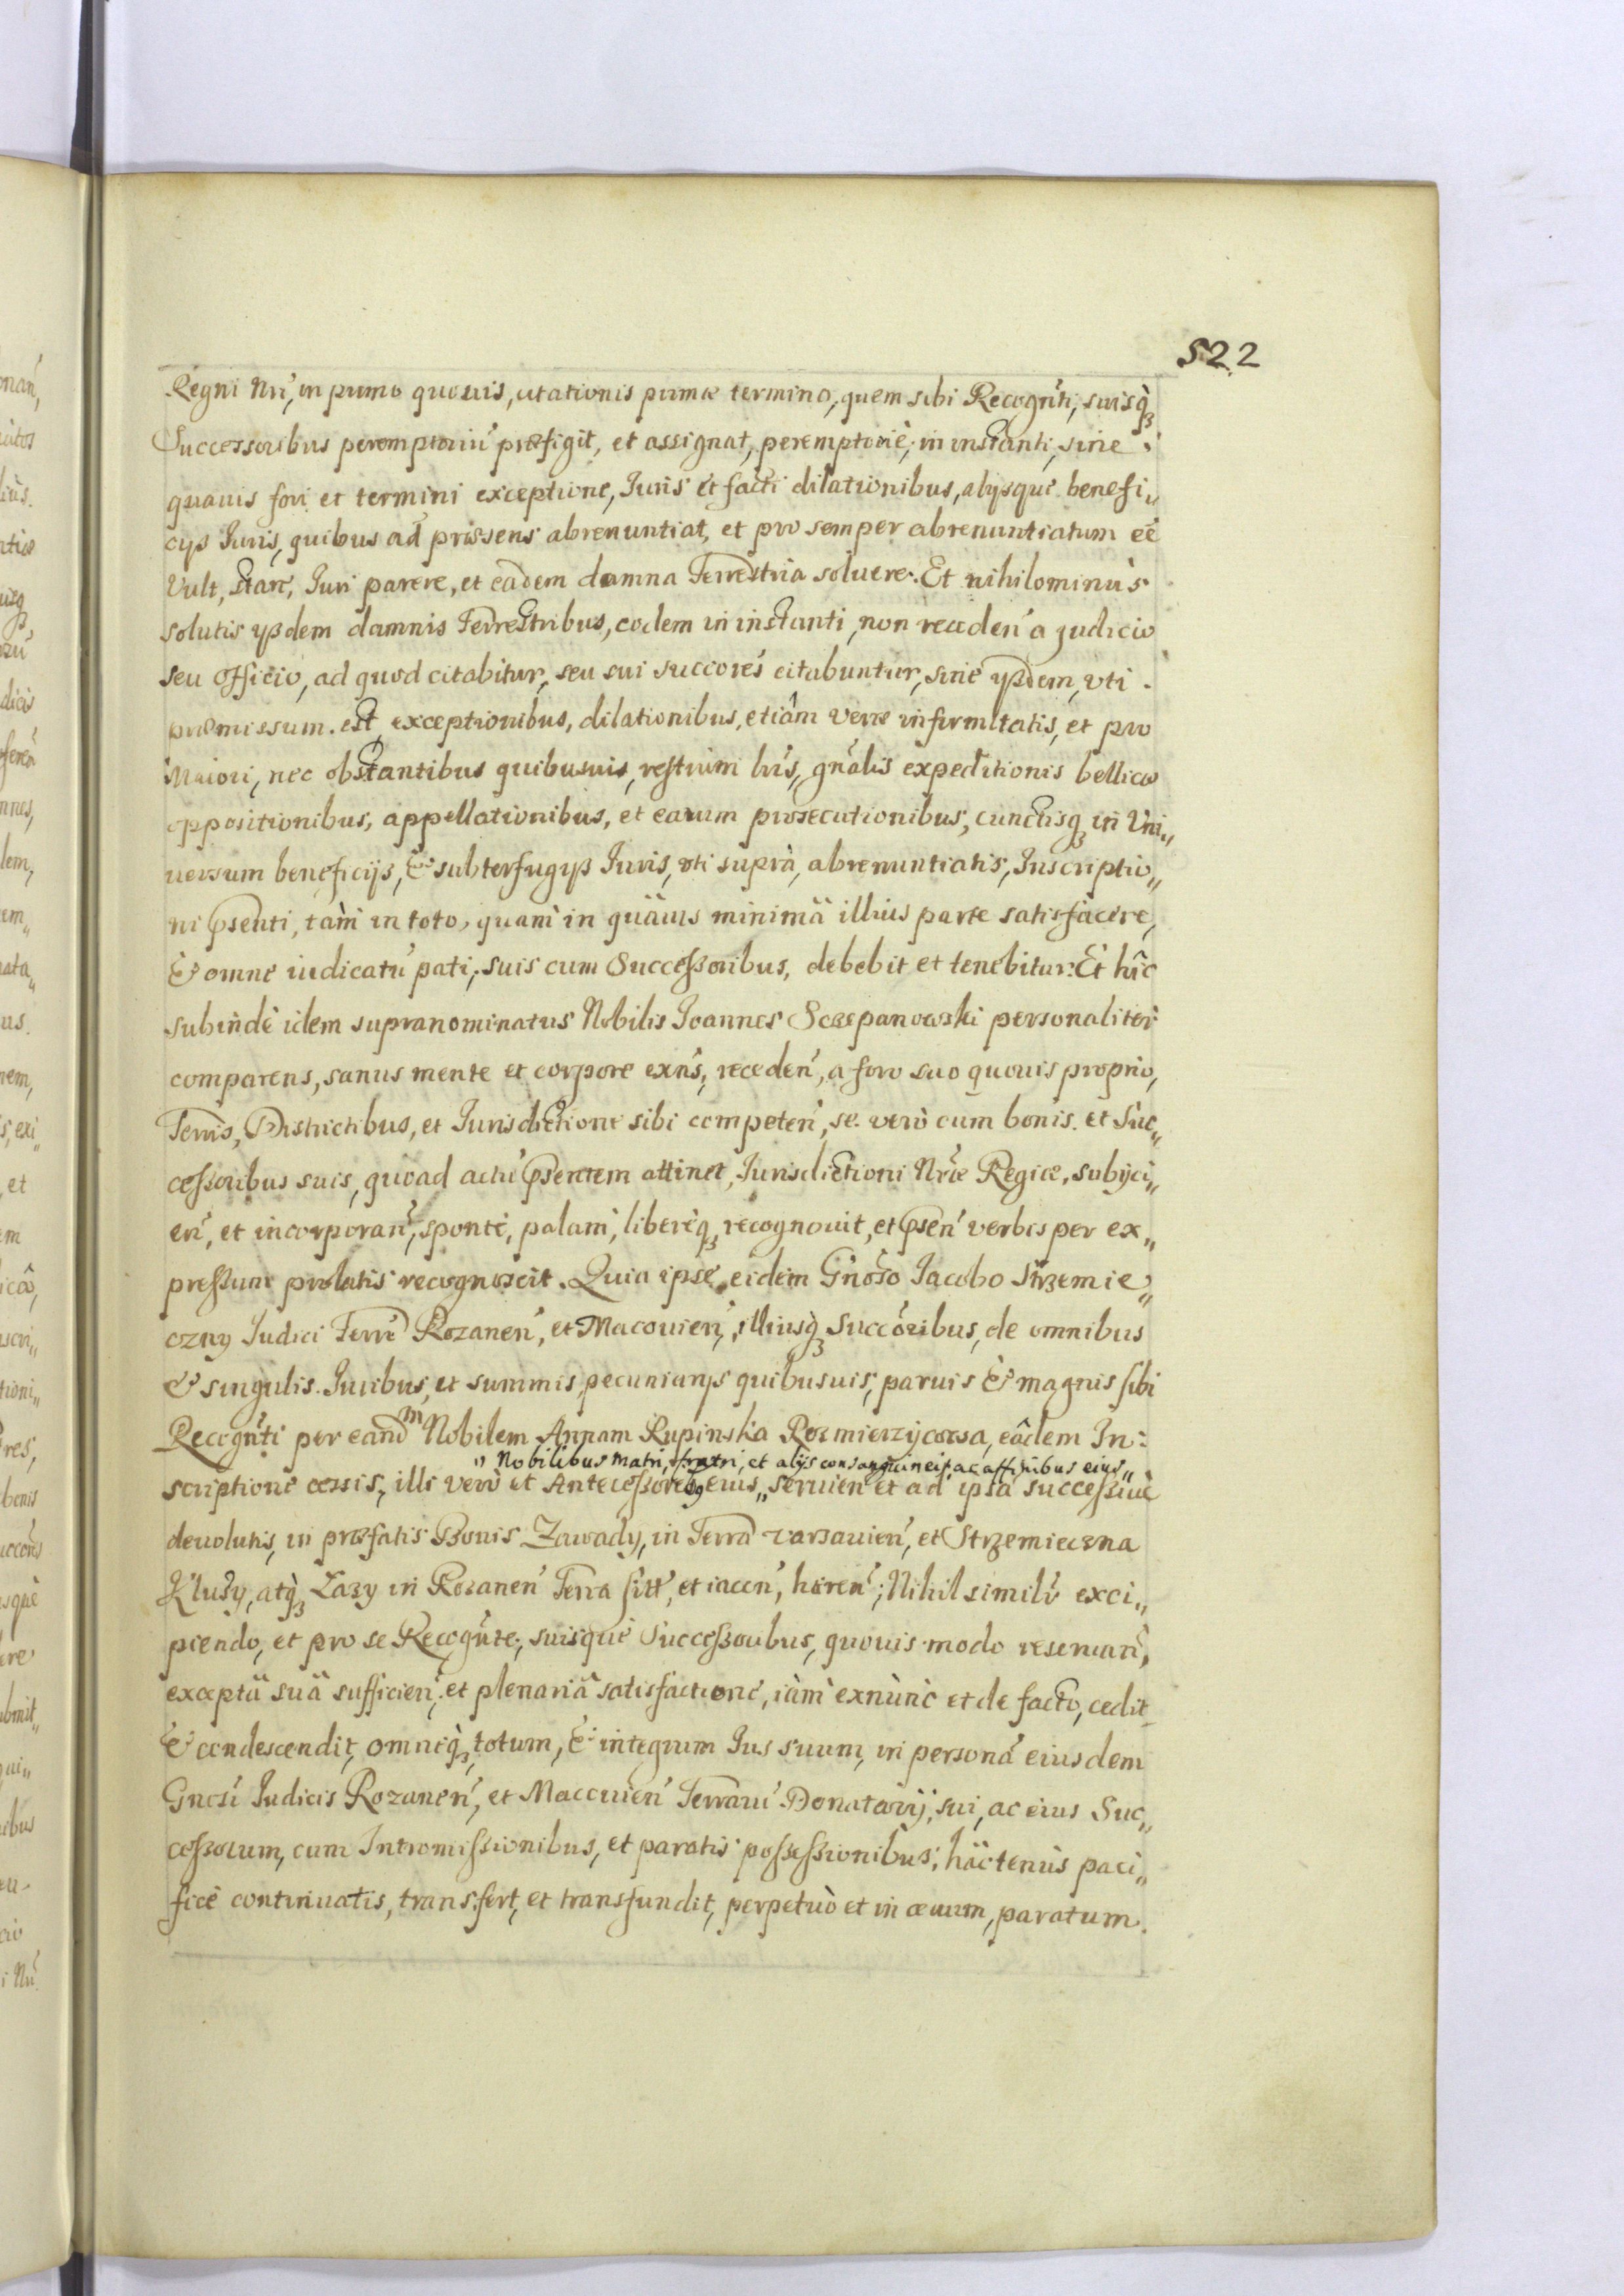 522
Regni Nri, in primo quouis, citationis primæ termino, quem sibi Recognti, suisq3
Successoribus peremptoriu præfigit, et assignat, peremptoriè, in instanti, sine
quauis fori et termini exceptione, Juris et facti dilationibus, alysque benefi„
cys Juris, quibus ad præsens abrenuntiat, et pro semper abrenuntiatum eē
Vult, stare, Juri parere, et eadem damna Terrestria soluere. Et nihilominùs
solutis ysdem damnis Terrestribus, eodem in instanti, non receden̄ a judicio
seu officio, ad quod citabitur, seu sui succores citabuntur, sine ysdem, vti
præmissum est, exceptionibus, dilationibus, etiâm veræ infirmitatis, et pro
Maiori, nec obstantibus quibusuis, restrium lris, gnalis expeditionis bellicæ
oppositionibus, appellationibus, et earum prosecutionibus, cunctisq3 in Vni„
uersum beneficijs, & subterfugys Juris, vti suprà, abrenuntiatis, Inscriptio„
ni psenti, tàm in toto, quam in quäuis minimä illius parte satisfacere,
& omne iudicatū pati, suis cum Successoribus, debebit et tenebitur. Et hîc
subindè idem supranominatus Nobilis Joannes Sczepanowski personaliter
comparens, sanus mente et corpore exn̄s, receden̄, a foro suo quouis proprio,
Terris, Districtibus, et Jurisdictione sibi competen̄, se verò cum bonis et Suc„
cessoribus suis, quoad actū psentem attinet, Jurisdictioni Nræ Regiæ, subijci„
en̄, et incorporan̄, spontè, palam, liberèq3 recognouit, et psen̄ verbis per ex„
pressum prolatis recognoscit. Quia ipse eidem Gnoso Jacobo Strzemie„
czny Judici Terrē Rozanen̄, et Macouien̄, illiusq3 Succoribus, de omnibus
& singulis Juribus, et summis pecuniarys quibusuis, paruis & magnis sibi
Recognti per eand m Nobilem Annam Rupinska Rozmierzycowa, eâdem In:
„ Nobilibus Matri, fratri, et alijs consanguineis, ac affinibus eius„
scriptione cessis, illi verò et Antecessoribus eius„ seruien̄ et ad ipsā successiuè
deuolutis, in præfatis Bonis Zawady, in Terrâ varsauien̄, et Strzemieczna
Kluzy, atq3 Lazy in Rozanen̄ Terra sitt, et iacen̄, hæren̄; Nihil similr exci„
piendo, et pro se Recognte, suisquè Successoribus, quouis modo reseruan̄,
exceptä suä sufficien̄, et plenariä satisfactione, iàm exnùnc et de facto, cedit
& condescendit, omneq3 totum, & integrum Jus suum, in personâ eiusdem
Gnosi Judicis Rozanen̄, et Macouien̄ Terrarū Donatarij, sui, ac eius Suc„
cessorum, cum Intromissionibus, et paratis possessionibus, häctenùs paci„
ficè continuatis, transfert, et transfundit, perpetuò et in æuum, paratum